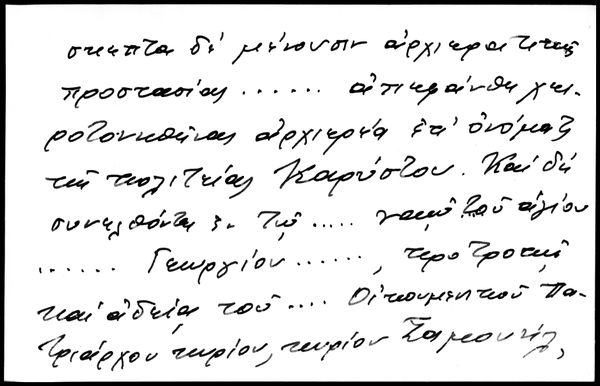 σκεπτα δή μένουσιν ἀρχιερατικῆς
προστασίας ...... ἀπεφάνθη χει-
ροτονηθῆναι ἀρχιερέα ἐπ' ὀνόματι
τῆς πολιτείας Καρύστου. Καί δή
συνελθόντες ἐν τῷ ..... ναῷ τοῦ ἁγίου
...... Γεωργίου ......, προτροπῇ
καί ἀδείᾳ τοῦ .... Οἰκουμενικοῦ Πα-
τριάρχου κυρίου, κυρίου Σαμουήλ,